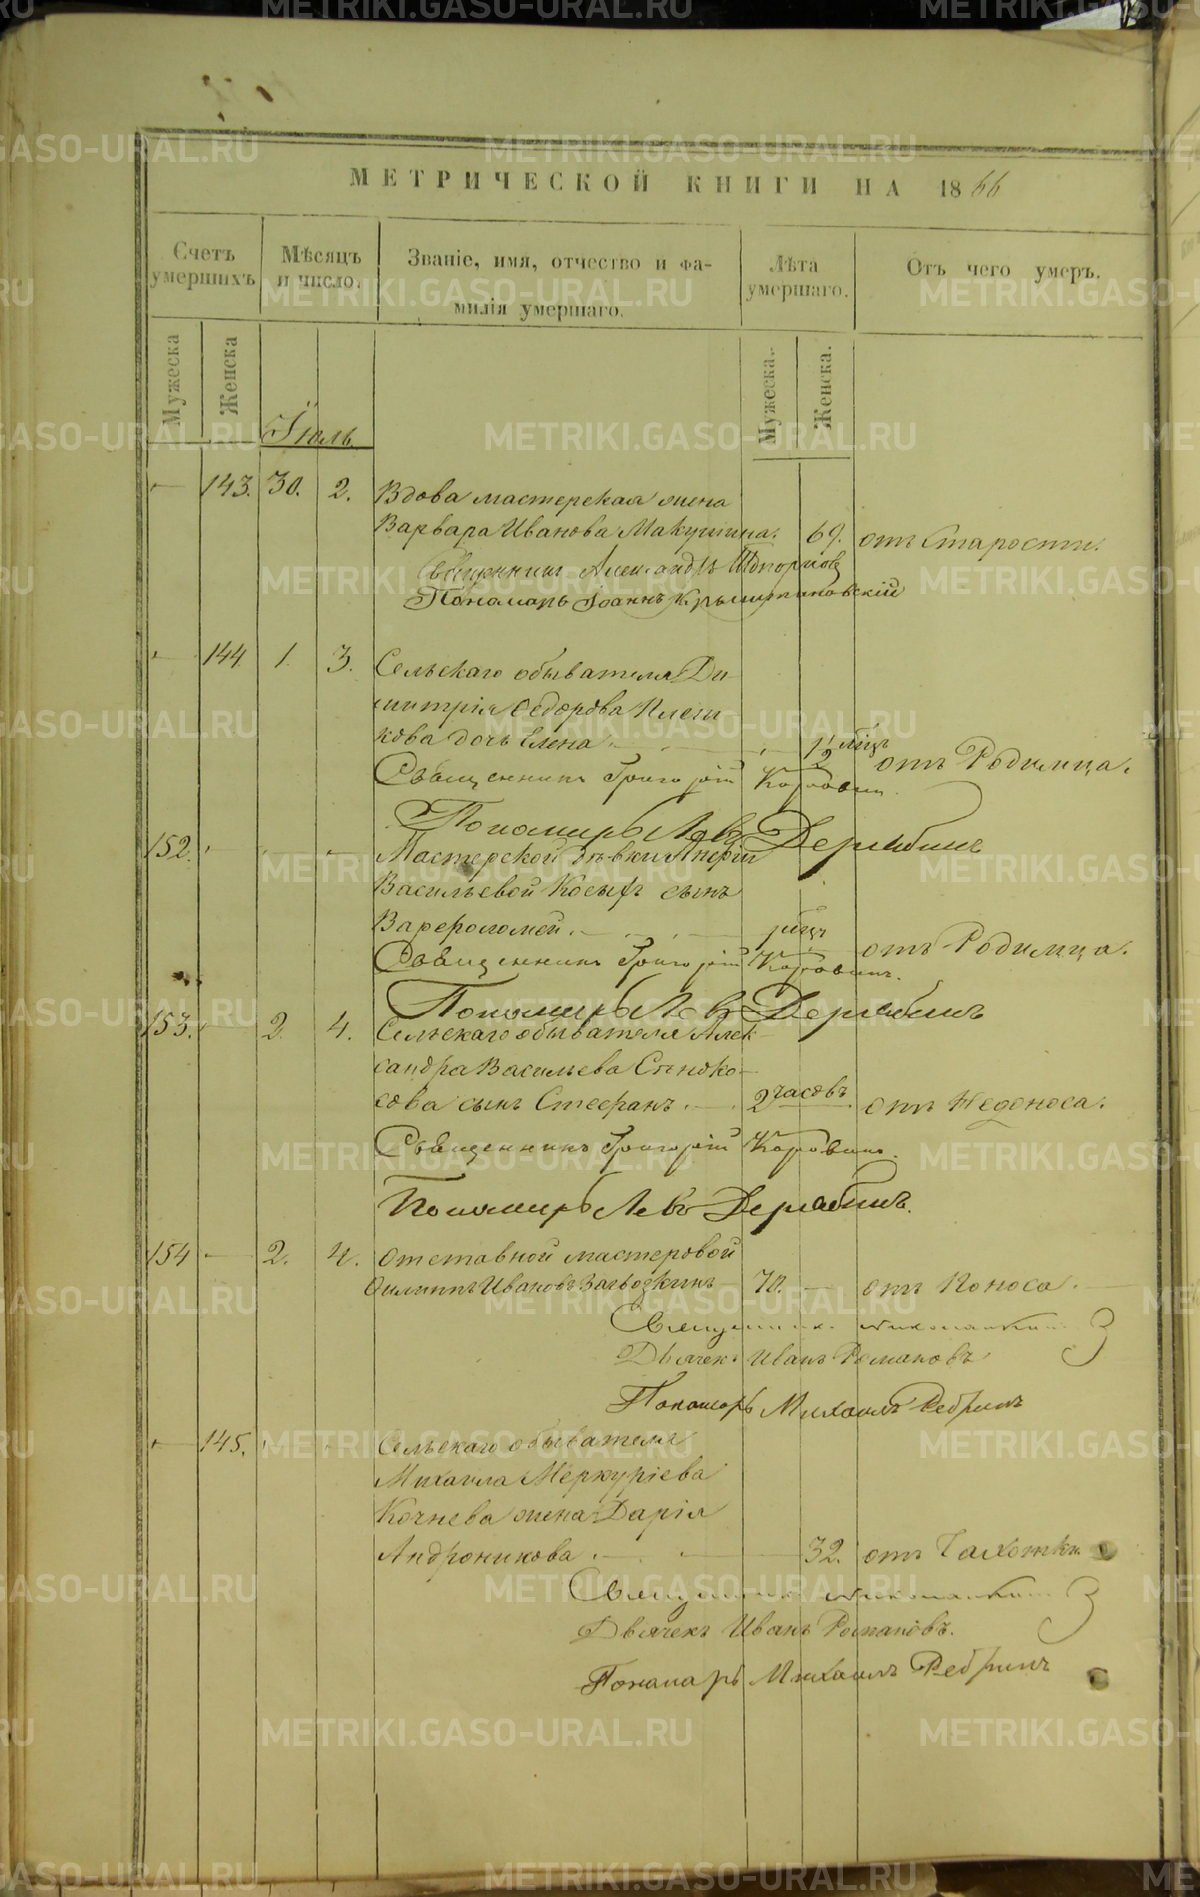 МЕТРИЧЕСКОЙ КНИГИ НА 1866
Счетъ умершихъ
Мѣсяцъ и число.
Званіе, имя, отчество и фа-
милія умершаго.
Лѣта умершаго.
Отъ чего умеръ.
Мужеска
Женска
Мужеска.
Женска.
Іюль
143. 30. 2. Вдова мастерская жена
Варвара Иванова Макушина. 69. отъ Старости.
Священникъ Александръ
Пономарь Іоаннъ
144 1. 3. Сельскаго обывателя Ди-
митрія Ѳедорова
кова дочь Елена 1/2 мѣсц. отъ Родимца.
Священникъ Григорій Коровин
Пономарь Левъ Дерябинъ
152. Мастерской дѣвки
Васильевой Косыхъ сынъ
Варѳоломей. мѣсц. отъ Родимца.
Священникъ Григорій Коровинъ.
Пономарь Левъ Дерябинъ
153. 2. 4. Сельскаго обывателя Алек-
сандра Васильева Сѣноко-
сова сынъ Стефанъ. 2 часовъ. отъ Недоноса.
Священникъ Григорій Коровинъ.
Пономарь Левъ Дерябинъ.
154 2. 4. Отставной мастеровой
Филиппъ Ивановъ 70. отъ Поноса.
Священникъ
Дьячекъ Иванъ Романовъ
Пономарь Михаилъ Ребринъ
145. Сельскаго обывателя
Михаила Меркуріева
Кочнева жена Дарія
Андроникова. 32. отъ Чахотки
Священникъ
Дьячекъ Иванъ Романовъ.
Пономарь Михаилъ Ребринъ
METRIKI.GASO-URAL.RU